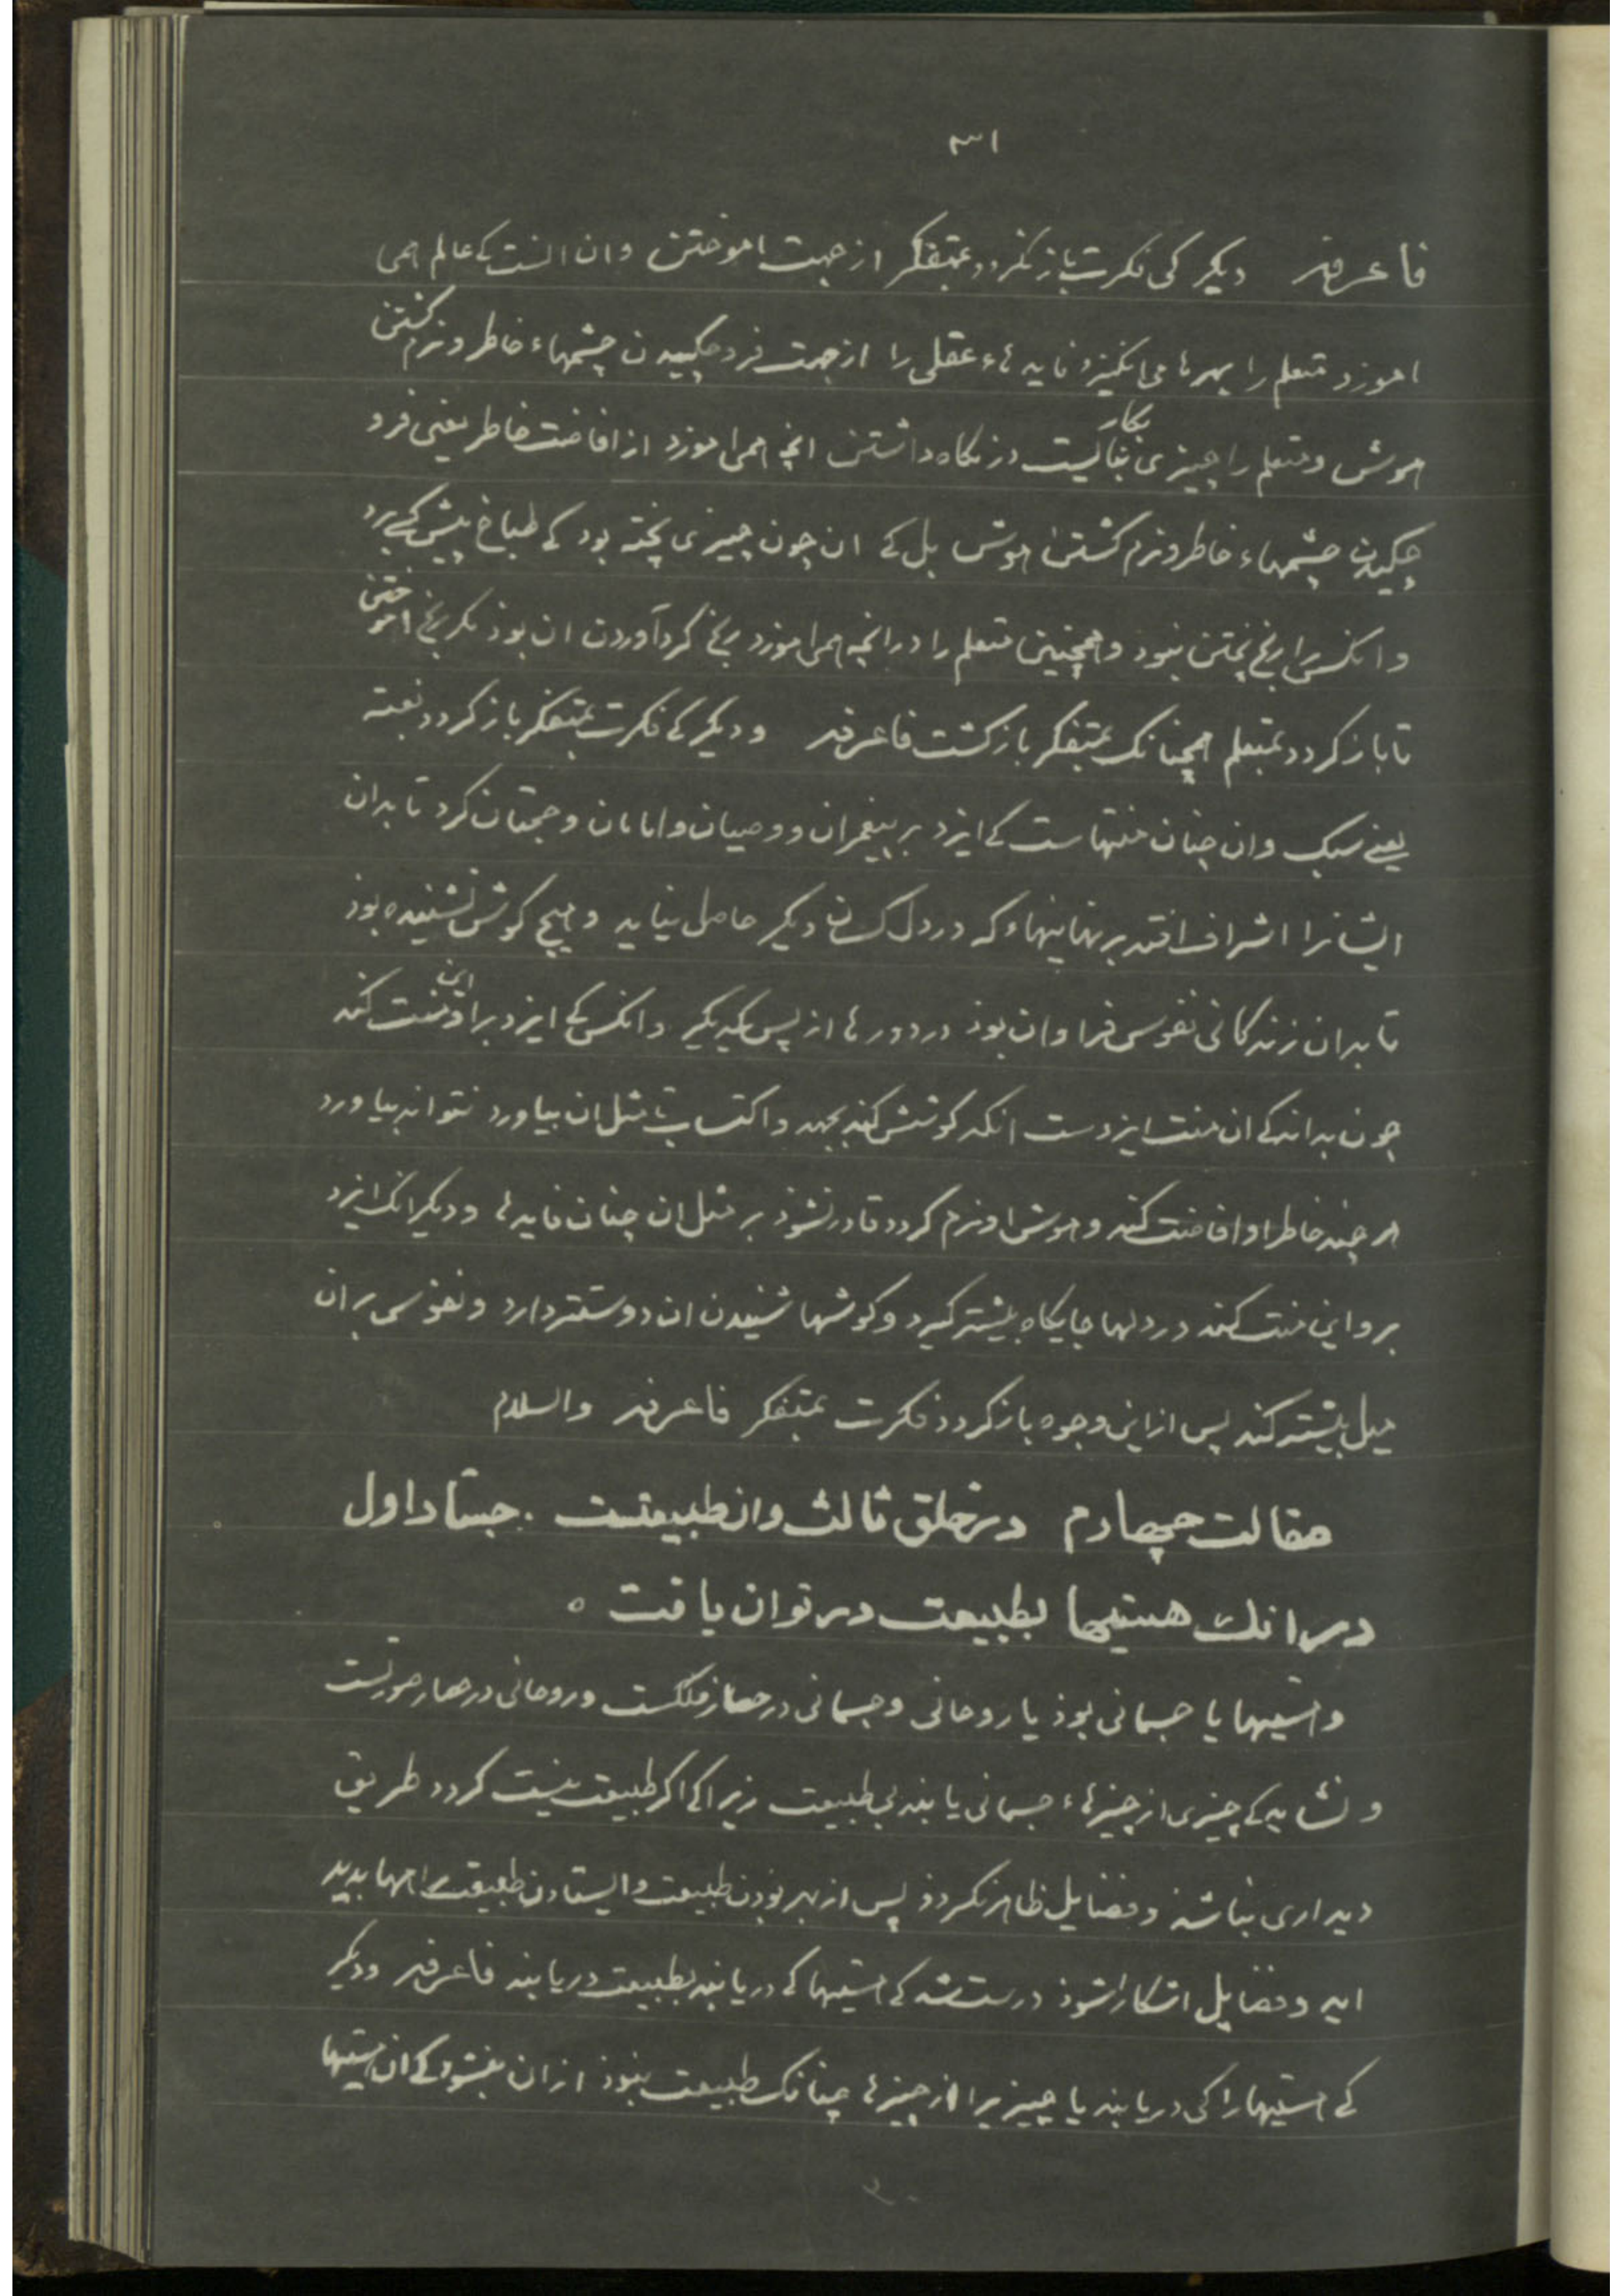 ۳۱
فاعرفه دیکر کی فکرت باز نکردد بمتفکر از جهت اموختن وان انست کے عالم همی
اموزد متعلم را بهرها می انکیزد فایدهاء عقلی را از جهت فرو چکیدن چشمهاء خاطر و نرم کشتن
هوش و متعلم را چیزی بکار نبایست در نکاه داشتن انچه همی اموزد از افاضت خاطر یعنی فرو
چکیدن چشمهاء خاطر و نرم کشتن هوش بل کے ان چون چیزی پخته بود کے طباخ پیش کسی برد
وانکس را رنج پختن نبود و همچنین متعلم را در انچه همی اموزد رنج کرد آوردن ان بود نکر رنج اموختن
تا باز کردد بمتعلم همچنانک بمتفکر بازکشت فاعرفه و دیکر کے فکرت بمتفکر باز کردد بغته
یعنے سبک وان چنان منتهاست کے ایزد بر پیغمبران و وصیان و امامان و حجتان کرد تا بدان
ایشانرا اشراف افتد بر نهانیهاء که در دل کسان دیکر حاصل نیاید و هیچ کوش نشنیده بوذ
تا بدان زندکانی نفوس فراوان بوذ در دورها از پس یکدیکر وانکس کے ایزد برو این منت کند
چون بداند کے ان منت ایزدست انکه کوشش کند بجهد و اکتساب تا مثل ان بیاورد نتواند بیاورد
هر چند خاطر او افاضت کند و هوش او نرم کردد قادر نشوذ بر مثل ان چنان فایدها و دیکر انک ایزد
برو این منت کند در دلها جایکاه بیشتر کیرد و کوشها شنیدن ان دوستتر دارد و نفوس بر ان
میل بیشتر کند پس از این وجوه باز کردد فکرت بمتفکر فاعرفه والسلام
مقالت چهارم در خلق ثالث وان طبیعتست . جستار اول
در انک هستیها بطبیعت در توان یافت ه
و هستیها یا جسمانی بوذ یا روحانی و جسمانی در حصار فلکست و روحانی در حصار صورتست
و نشاید کے چیزی از چیزهاء جسمانی یابند بی طبیعت زیرا کے اکر طبیعت نیست کردد طریق
دیداری نباشد و فضایل ظاهر نکردد پس از بهر بودن طبیعت و ایستادن طبیعت راهها پدید
اید و فضایل اشکارا شوذ درست شد کے هستیها کے دریابند بطبیعت دریابند فاعرفه و دیکر
کے هستیها را کی دریابند یا چیزیرا از چیزها چنانک طبیعت نبوذ از ان نبشود کے ان هستیها